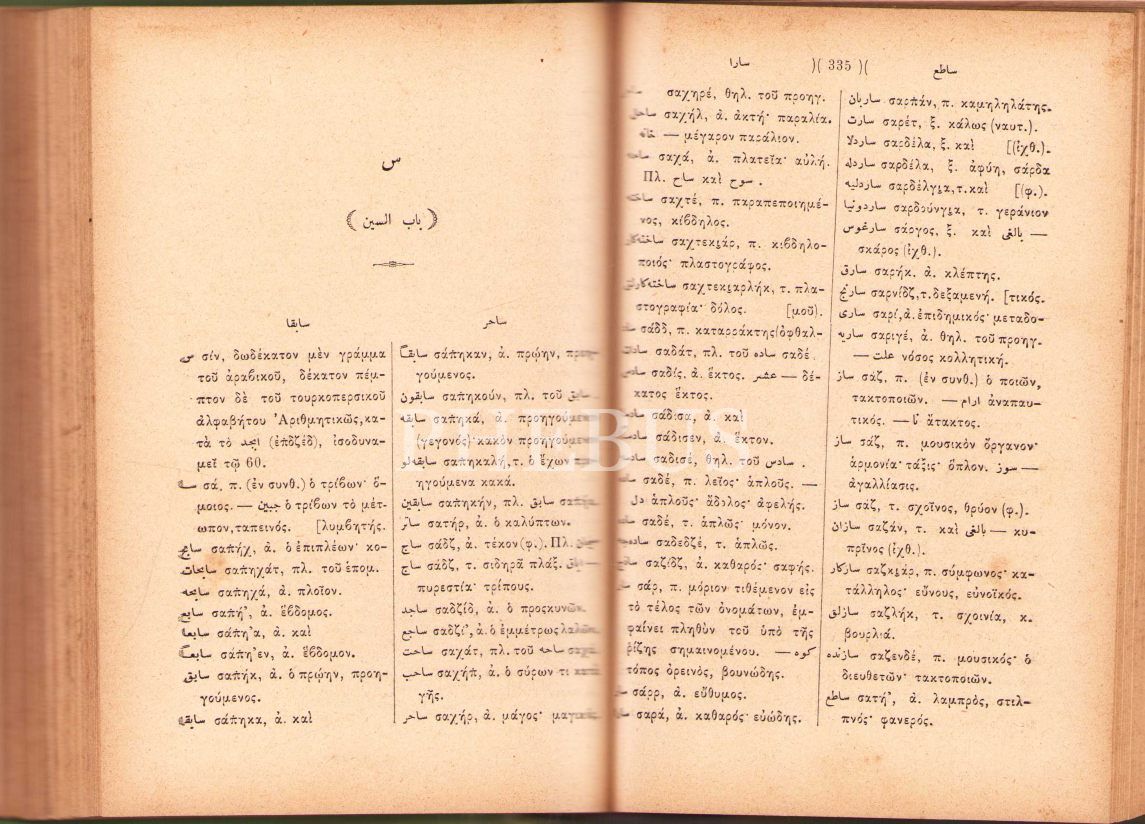 س
باب السين
سابقا
ساحر
س σίν, δωδέκατον μὲν γράμμα
τοῦ ἀραβικοῦ, δέκατον πέμ-
πτον δὲ τοῦ τουρκοπερσικοῦ
ἀλφαβήτου Ἀριθμητικῶς, κα-
τὰ τὸ ابجد (ἐπδζέδ), ἰσοδυνα-
μεῖ τῷ 60.
سا σά, π. (ἐν συνθ.) ὁ τρίβων· ὅ-
μοιος. — جبين ὁ τρίβων τὸ μέτ-
ωπον, ταπεινός. [λυμβητής.
سابح σαπήχ, ἀ. ὁ ἐπιπλέων· κο-
سابحات σαπηχάτ, πλ. τοῦ ἑπομ.
سابحه σαπηχά, ἀ. πλοῖον.
سابع σαπή', ἀ. ἕβδομος.
سابعا σάπη'α, ἀ. καὶ
سابعاً σάπη'εν, ἀ. ἕβδομον.
سابق σαπήκ, ἀ. ὁ πρῴην, προη-
γούμενος.
سابقا σάπηκα, ἀ. καὶ
سابقاً σάπηκαν, ἀ. πρῴην,
γούμενος.
سابقون σαπηκούν, πλ. τοῦ سابق.
سابقه σαπηκά, ἀ. προηγούμενον
(γεγονός)· κακὸν προηγούμενον
سابقه‌لو σαπηκαλή, τ. ὁ ἔχων
ηγούμενα κακά.
سابقين σαπηκήν, πλ. سابق
ساتر σατήρ, ἀ. ὁ καλύπτων.
ساج σάδζ, ἀ. τέκον (φ.). Πλ.
ساج σάδζ, τ. σιδηρᾶ πλάξ.
πυρεστία· τρίπους.
ساجد σαδζίδ, ἀ. ὁ προσκυνῶν.
ساجع σαδζί', ἀ. ὁ ἐμμέτρως λαλῶν.
ساحت σαχάτ, πλ. τοῦ ساحه
ساحب σαχήπ, ἀ. ὁ σύρων τι κατὰ
γῆς.
ساحر σαχήρ, ἀ. μάγος·
سارا
)( 335 )(
ساطع
σαχηρέ, θηλ. τοῦ προηγ.
ساحل σαχήλ, ἀ. ἀκτή· παραλία.
خانه — μέγαρον παράλιον.
ساحه σαχά, ἀ. πλατεῖα· αὐλή.
Πλ. ساح καὶ سوح.
ساخته σαχτέ, π. παραπεποιημέ-
νος, κίβδηλος.
ساخته‌كار σαχτεκι̯άρ, π. κιβδηλο-
ποιός· πλαστογράφος.
ساخته‌كارلق σαχτεκι̯αρλήκ, τ. πλα-
στογραφία· δόλος. [μοῦ).
σάδδ, π. καταρράκτης (ὀφθαλ-
سادات σαδάτ, πλ. τοῦ ساده σαδέ.
سادس σαδίς, ἀ. ἕκτος. عشر — δέ-
κατος ἕκτος.
σάδισα, ἀ. καὶ
σάδισεν, ἀ. ἕκτον.
سادسه σαδισέ, θηλ. τοῦ سادس.
ساده σαδέ, π. λεῖος· ἁπλοῦς. —
دل ἁπλοῦς· ἄδολος· ἀφελής.
ساده σαδέ, τ. ἁπλῶς· μόνον.
ساده‌جه σαδεδζέ, τ. ἁπλῶς.
σαζίδζ, ἀ. καθαρός· σαφής.
σάρ, π. μόριον τιθέμενον εἰς
τὸ τέλος τῶν ὀνομάτων, ἐμ-
φαίνει πληθὺν τοῦ ὑπὸ τῆς
ῥίζης σημαινομένου. — كوه
τόπος ὀρεινός, βουνώδης.
σάρρ, ἀ. εὔθυμος.
σαρά, ἀ. καθαρός· εὐώδης.
ساربان σαρπάν, π. καμηληλάτης.
سارت σαρέτ, ξ. κάλως (ναυτ.).
ساردلا σαρδέλα, ξ. καὶ [(ἰχθ.).
ساردله σαρδέλα, ξ. ἀφύη, σάρδα
ساردليه σαρδέλγι̯α, τ. καὶ [(φ.).
ساردونيا σαρδούνγι̯α, τ. γεράνιον
سارغوس σάργος, ξ. καὶ بالغى —
σκάρος (ἰχθ.).
سارق σαρήκ, ἀ. κλέπτης.
سارنج σαρνίδζ, τ. δεξαμενή. [τικός.
سارى σαρί, ἀ. ἐπιδημικός· μεταδο-
ساريه σαριγέ, ἀ. θηλ. τοῦ προηγ.
— علت νόσος κολλητική.
ساز σάζ, π. (ἐν συνθ.) ὁ ποιῶν,
τακτοποιῶν. — آرام ἀναπαυ-
τικός. نا — ἄτακτος.
ساز σάζ, π. μουσικὸν ὄργανον·
ἁρμονία· τάξις· ὅπλον. سوز —
ἀγαλλίασις.
ساز σάζ, τ. σχοῖνος, θρύον (φ.).
سازان σαζάν, τ. καὶ بالغى — κυ-
πρῖνος (ἰχθ.).
سازكار σαζκι̯άρ, π. σύμφωνος· κα-
τάλληλος· εὔνους, εὐνοϊκός.
سازلق σαζλήκ, τ. σχοινία, κ.
βουρλιά.
سازنده σαζενδέ, π. μουσικός· ὁ
διευθετῶν· τακτοποιῶν.
ساطع σατή', ἀ. λαμπρός, στιλ-
πνός· φανερός.